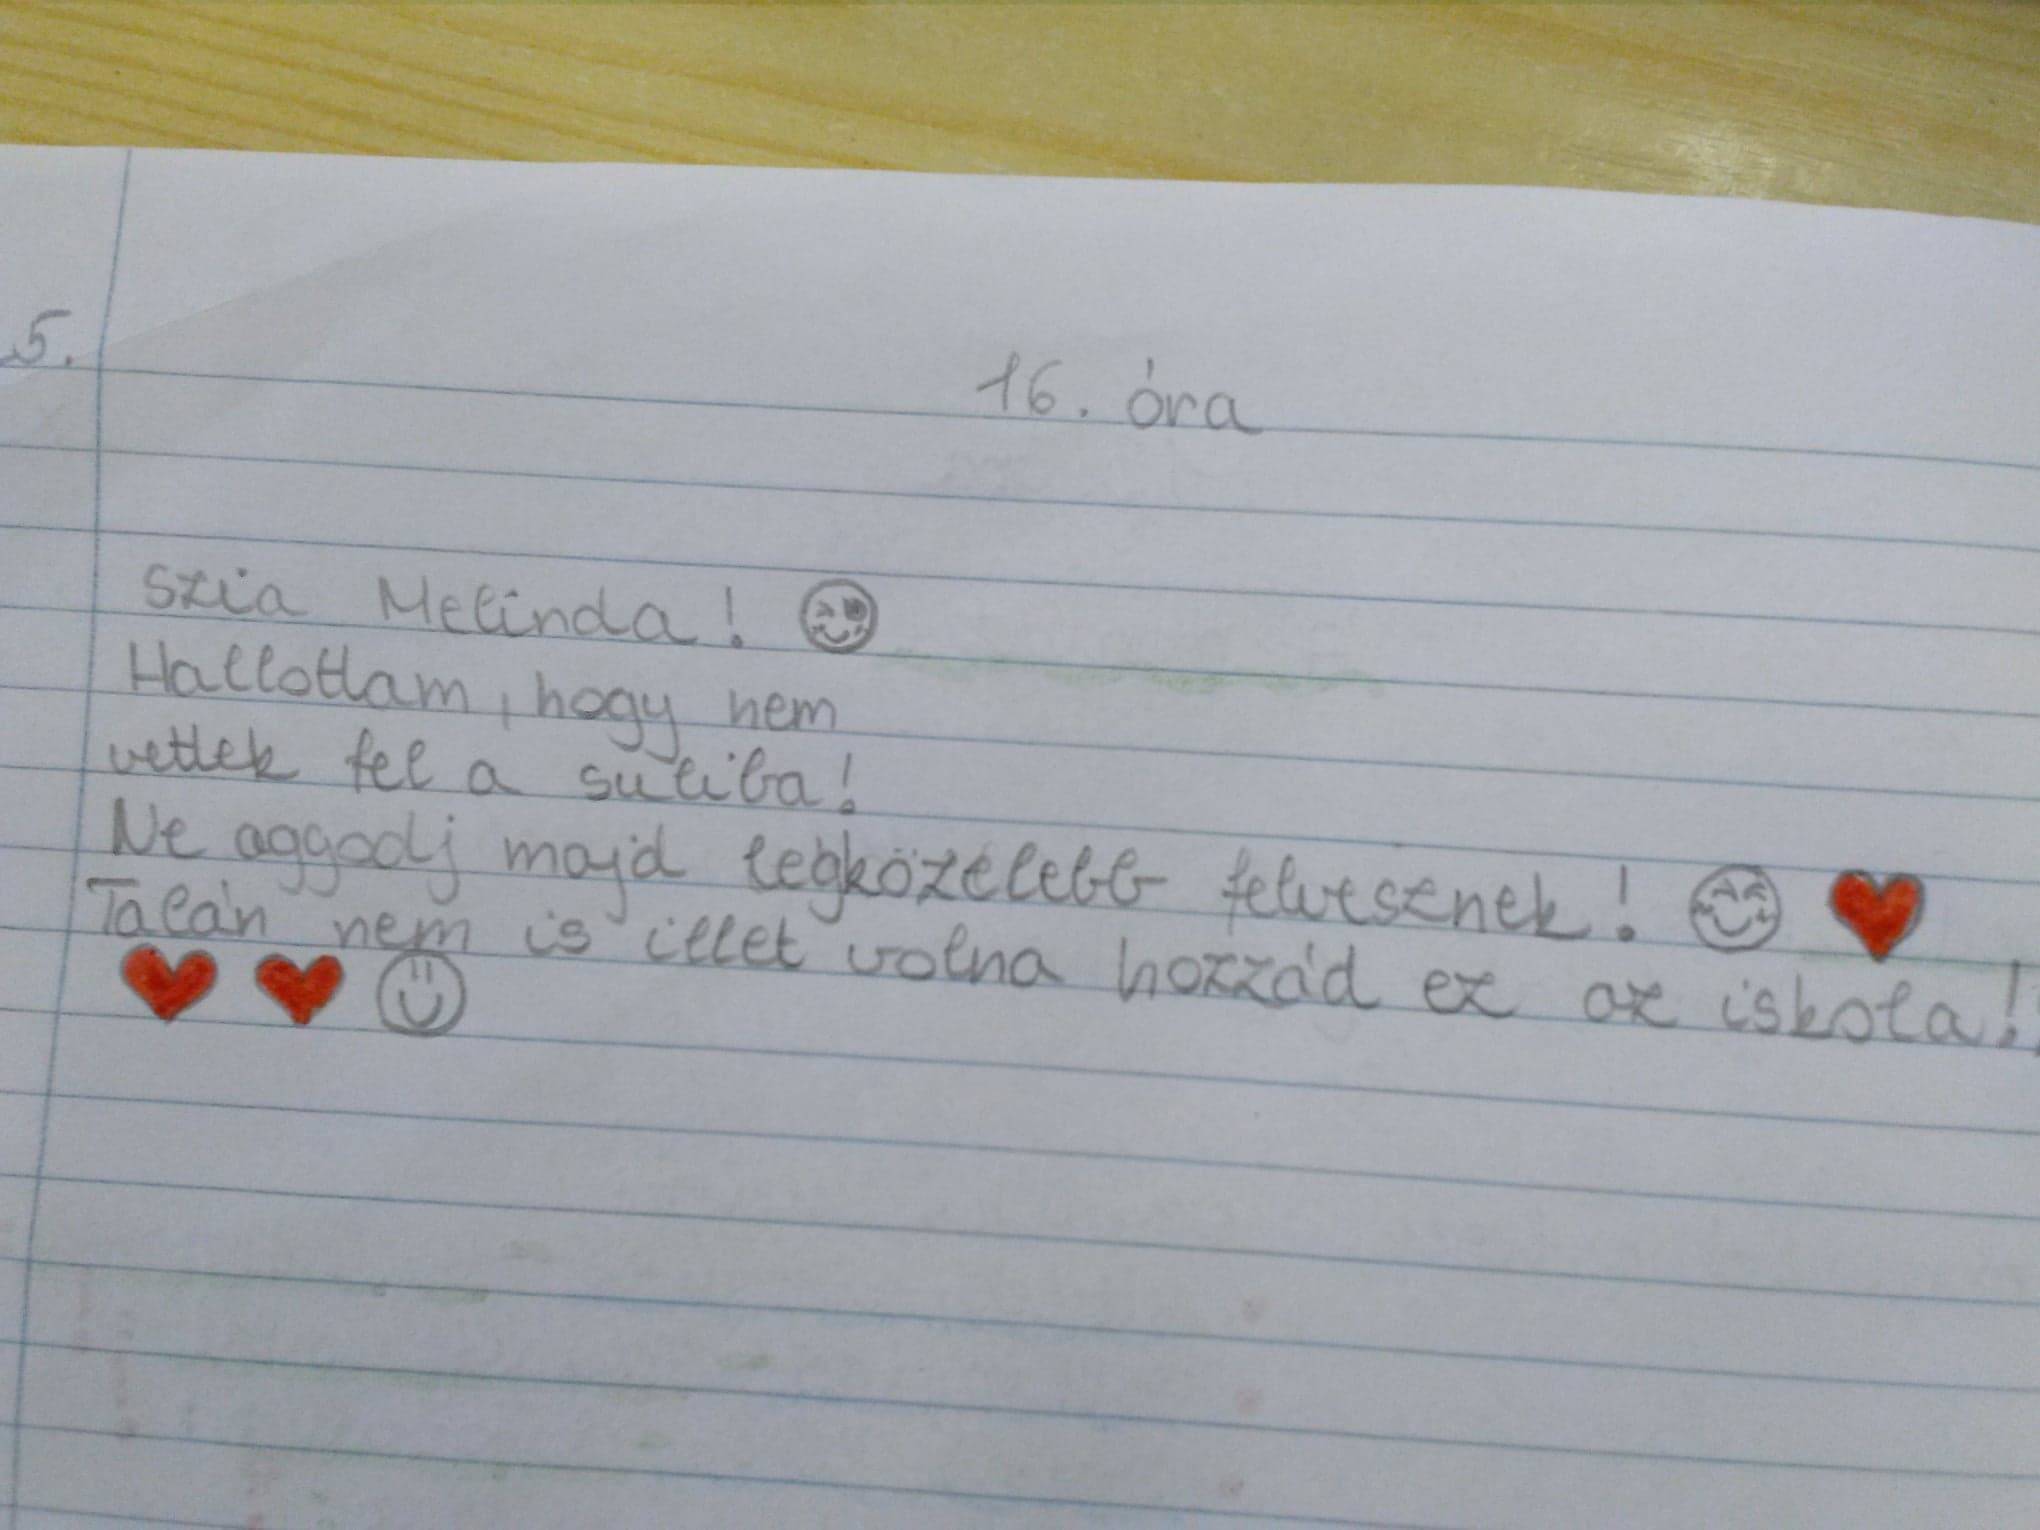 5.
16. óra
Szia Melinda!
Hallottam, hogy nem
vettek fel a suliba!
Ne aggodj majd legközelebb felvesznek!
Talán nem is illet volna hozzád ez az iskola!